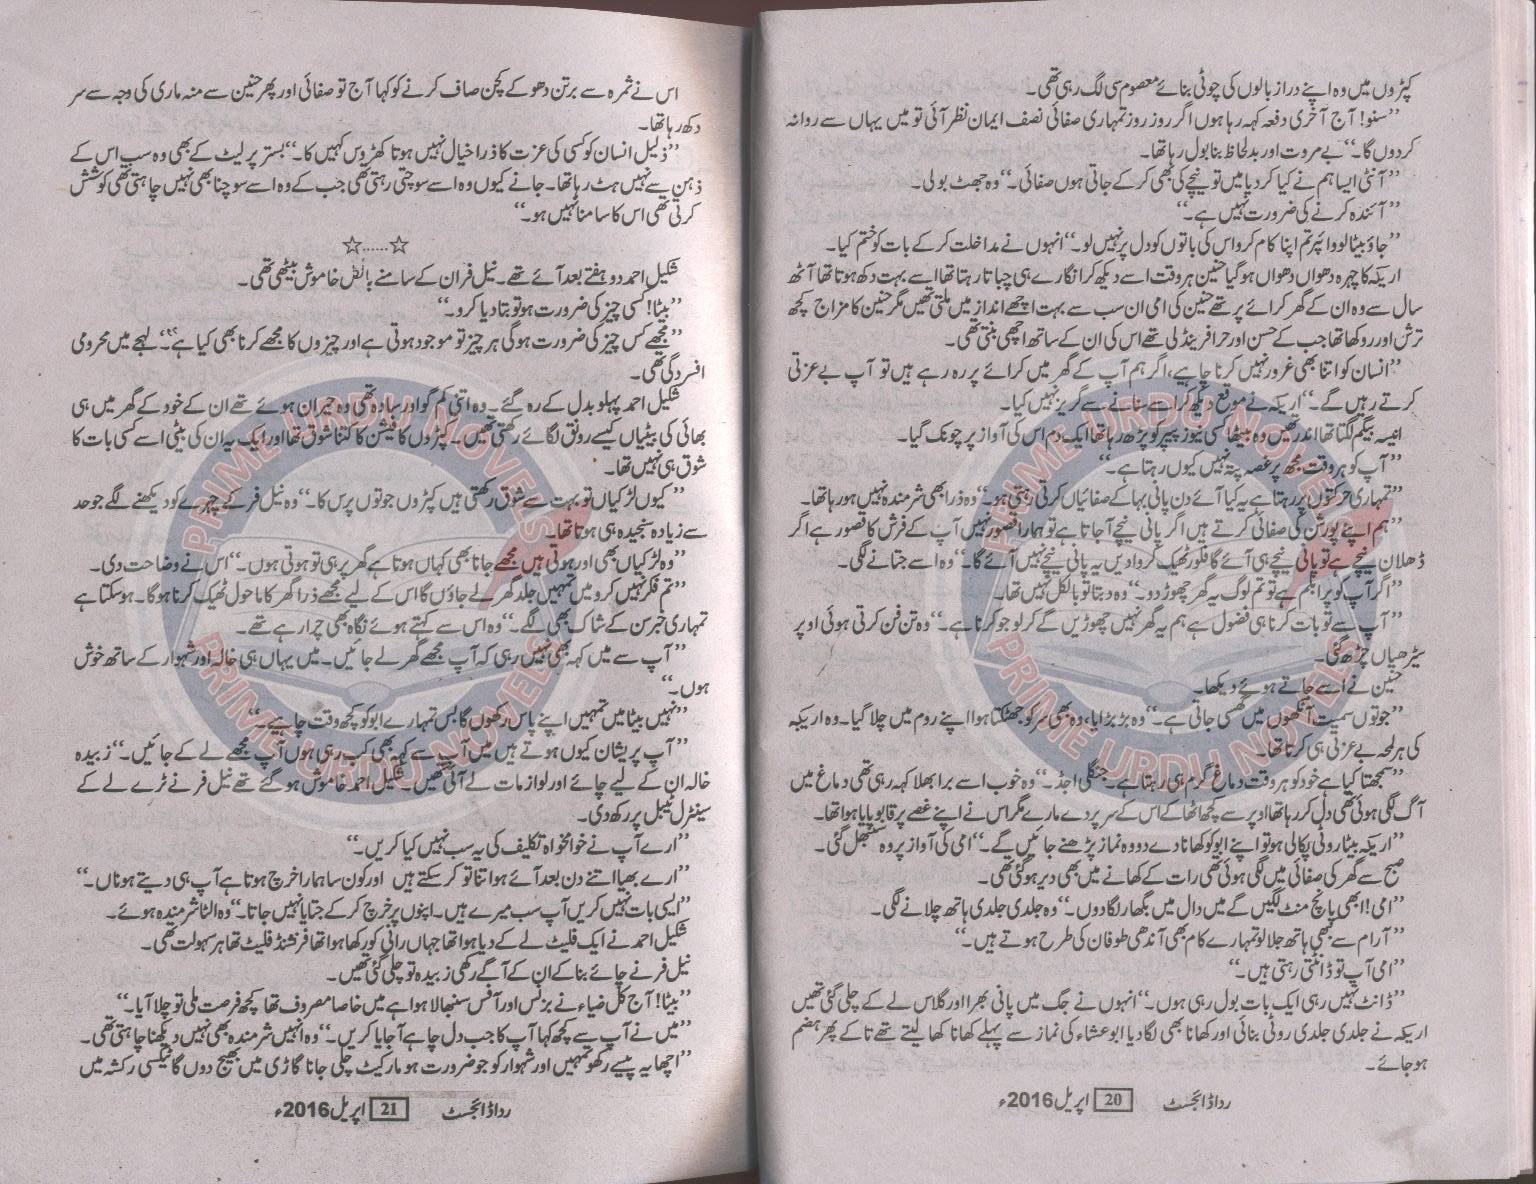 کپڑوں میں وہ اپنے دراز بالوں کی چوٹی بنائے معصوم سی لگ رہی تھی۔
”سنو! آج آخری دفعہ کہہ رہا ہوں اگر روز روز تمہاری صفائی نصف ایمان نظر آئی تو میں یہاں سے روانہ
کردوں گا۔“ بے مروت اور بد لحاظ بنا بول رہا تھا۔
”آنٹی ایسا ہم نے کیا کر دیا میں تو نیچے کی بھی کر کے جاتی ہوں صفائی۔“ وہ جھٹ بولی۔
”آئندہ کرنے کی ضرورت نہیں ہے۔“
”جاؤ بیٹا لو وائپر تم اپنا کام کرو اس کی باتوں کو دل پر نہیں لو۔“ انہوں نے مداخلت کر کے بات کو ختم کیا۔
اریکہ کا چہرہ دھواں دھواں ہو گیا حنین ہر وقت اسے دیکھ کر انگارے ہی چباتا رہتا تھا اسے بہت دکھ ہوتا تھا آٹھ
سال سے وہ ان کے گھر کرائے پر تھے حنین کی امی ان سب سے بہت اچھے انداز میں ملتی تھیں مگر حنین کا مزاج کچھ
ترش اور روکھا تھا جب کے حسن اور حرا فرینڈلی تھے اس کی ان کے ساتھ اچھی بنتی تھی۔
”انسان کو اتنا بھی غرور نہیں کرنا چاہیے، اگر ہم آپ کے گھر میں کرائے پر رہ رہے ہیں تو آپ بے عزتی
کرتے رہیں گے۔“ اریکہ نے موقع دیکھ کر اسے سنانے سے گریز نہیں کیا۔
انیسہ بیگم لگتا تھا اندر تھیں وہ بیٹھا کسی نیوز پیپر کو پڑھ رہا تھا ایک دم اس کی آواز پر چونک گیا۔
”آپ کو ہر وقت مجھ پر غصہ پتہ نہیں کیوں رہتا ہے۔“
”تمہاری حرکتوں پر رہتا ہے یہ کیا آئے دن پانی بہا کے صفائیاں کرتی رہتی ہو۔“ وہ ذرا بھی شرمندہ نہیں ہو رہا تھا۔
”ہم اپنے پورشن کی صفائی کرتے ہیں اگر پانی نیچے آ جاتا ہے تو ہمارا قصور نہیں آپ کے فرش کا قصور ہے اگر
ڈھلان نیچے ہے تو پانی نیچے ہی آئے گا فلور ٹھیک کروا دیں یہ پانی نیچے نہیں آئے گا۔“ وہ اسے جتانے لگی۔
”اگر آپ کو پرابلم ہے تو تم لوگ یہ گھر چھوڑ دو۔“ وہ دبتا تو بالکل نہیں تھا۔
”آپ سے تو بات کرنا ہی فضول ہے ہم یہ گھر نہیں چھوڑیں گے کر لو جو کرنا ہے۔“ وہ تن فن کرتی ہوئی اوپر
سیڑھیاں چڑھ گئی۔
حنین نے اسے جاتے ہوئے دیکھا۔
”جوتوں سمیت آنکھوں میں گھسی جاتی ہے۔“ وہ بڑبڑایا، وہ بھی سر کو جھٹکتا ہوا اپنے روم میں چلا گیا۔ وہ اریکہ
کی ہر لمحہ بے عزتی ہی کرتا تھا۔
”سمجھتا کیا ہے خود کو ہر وقت دماغ گرم ہی رہتا ہے۔ جنگلی اجڈ۔“ وہ خوب اسے برا بھلا کہہ رہی تھی دماغ میں
آگ لگی ہوئی تھی دل کر رہا تھا اوپر سے کچھ اٹھا کے اس کے سر پر دے مارے مگر اس نے اپنے غصے پر قابو پایا ہوا تھا۔
”اریکہ بیٹا روٹی پکالی ہو تو اپنے ابو کو کھانا دے دو وہ نماز پڑھنے جائیں گے۔“ امی کی آواز پر وہ سنبھل گئی۔
صبح سے گھر کی صفائی میں لگی ہوئی تھی رات کے کھانے میں بھی دیر ہو گئی تھی۔
”امی! ابھی پانچ منٹ لگیں گے میں دال میں بگھار لگا دوں۔“ وہ جلدی جلدی ہاتھ چلانے لگی۔
”آرام سے بھی ہاتھ چلا لو تمہارے کام بھی آندھی طوفان کی طرح ہوتے ہیں۔“
”امی آپ تو ڈانٹتی رہتی ہیں۔“
”ڈانٹ نہیں رہی ایک بات بول رہی ہوں۔“ انہوں نے جگ میں پانی بھرا اور گلاس لے کے چلی گئی تھیں
اریکہ نے جلدی جلدی روٹی بنائی اور کھانا بھی لگا دیا ابو عشاء کی نماز سے پہلے کھانا کھا لیتے تھے تا کے پھر ہضم
ہو جائے۔
رداڈائجسٹ 20 اپریل 2016ء
اس نے ثمرہ سے برتن دھو کے کچن صاف کرنے کو کہا آج تو صفائی اور پھر حنین سے منہ ماری کی وجہ سے سر
دکھ رہا تھا۔
”ذلیل انسان کو کسی کی عزت کا ذرا خیال نہیں ہوتا کھڑوس کہیں کا۔“ بستر پر لیٹ کے بھی وہ سب اس کے
ذہن سے نہیں ہٹ رہا تھا۔ جانے کیوں وہ اسے سوچتی رہتی تھی جب کے وہ اسے سوچنا بھی نہیں چاہتی تھی کوشش
کرتی تھی اس کا سامنا نہیں ہو۔“
☆......☆
شکیل احمد دو ہفتے بعد آئے تھے۔ نیل فر ان کے سامنے بالکل خاموش بیٹھی تھی۔
”بیٹا! کسی چیز کی ضرورت ہو تو بتا دیا کرو۔“
”مجھے کس چیز کی ضرورت ہوگی ہر چیز تو موجود ہوتی ہے اور چیزوں کا مجھے کرنا بھی کیا ہے؟“ لہجے میں محرومی
افسردگی تھی۔
شکیل احمد پہلو بدل کے رہ گئے۔ وہ اتنی کم گو اور سادہ تھی وہ حیران ہوئے تھے ان کے خود کے گھر میں ہی
بھائی کی بیٹیاں کیسے رونق لگائے رکھتی تھیں۔ کپڑوں کا فیشن کا کتنا شوق تھا اور ایک یہ ان کی بیٹی اسے کسی بات کا
شوق ہی نہیں تھا۔
”کیوں لڑکیاں تو بہت سے شوق رکھتی ہیں کپڑوں جوتوں پرس کا۔“ وہ نیل فر کے چہرے کو دیکھنے لگے جو حد
سے زیادہ سنجیدہ ہی ہوتا تھا۔
”وہ لڑکیاں بھی اور ہوتی ہیں مجھے جانا بھی کہاں ہوتا ہے گھر پر ہی تو ہوتی ہوں۔“ اس نے وضاحت دی۔
”تم فکر نہیں کرو میں تمہیں جلد گھر لے جاؤں گا اس کے لیے مجھے ذرا گھر کا ماحول ٹھیک کرنا ہوگا۔ ہو سکتا ہے
تمہاری خبر سن کے شاک بھی لگے۔“ وہ اس سے کہتے ہوئے نگاہ بھی چرا رہے تھے۔
”آپ سے میں کہہ بھی نہیں رہی کہ آپ مجھے گھر لے جائیں۔ میں یہاں ہی خالہ اور شہوار کے ساتھ خوش
ہوں۔“
”نہیں بیٹا میں تمہیں اپنے پاس رکھوں گا بس تمہارے ابو کو کچھ وقت چاہیے۔“
”آپ پریشان کیوں ہوتے ہیں میں آپ سے کہہ بھی کب رہی ہوں آپ مجھے لے کے جائیں۔“ زبیدہ
خالہ ان کے لیے چائے اور لوازمات لے آئی تھیں۔ شکیل احمد خاموش ہو گئے تھے نیل فر نے ٹرے لے کے
سینٹرل ٹیبل پر رکھ دی۔
”ارے آپ نے خوامخواہ تکلیف کی یہ سب نہیں کیا کریں۔“
”ارے بھیا اتنے دن بعد آئے ہو اتنا تو کر سکتے ہیں اور کون سا ہمارا خرچ ہوتا ہے آپ ہی دیتے ہو ناں۔“
”ایسی بات نہیں کریں آپ سب میرے ہیں۔ اپنوں پر خرچ کر کے جتایا نہیں جاتا۔“ وہ الٹا شرمندہ ہوئے۔
شکیل احمد نے ایک فلیٹ لے کے دیا ہوا تھا جہاں رانی کو رکھا ہوا تھا فرنشڈ فلیٹ تھا ہر سہولت تھی۔
نیل فر نے چائے بنا کے ان کے آگے رکھی زبیدہ تو چلی گئی تھیں۔
”بیٹا! آج کل ضیاء نے بزنس اور آفس سنبھالا ہوا ہے میں خاصا مصروف تھا کچھ فرصت ملی تو چلا آیا۔“
”میں نے آپ سے کچھ کہا آپ کا جب دل چاہے آ جایا کریں۔“ وہ انہیں شرمندہ بھی نہیں دیکھنا چاہتی تھی۔
”اچھا یہ پیسے رکھو تمہیں اور شہوار کو جو ضرورت ہو مارکیٹ چلی جانا گاڑی میں بھیج دوں گا ٹیکسی رکشہ میں
رداڈائجسٹ 21 اپریل 2016ء
PRIME URDU NOVELS
PRIME URDU NOVELS
PRIME URDU NOVELS
PRIME URDU NOVELS